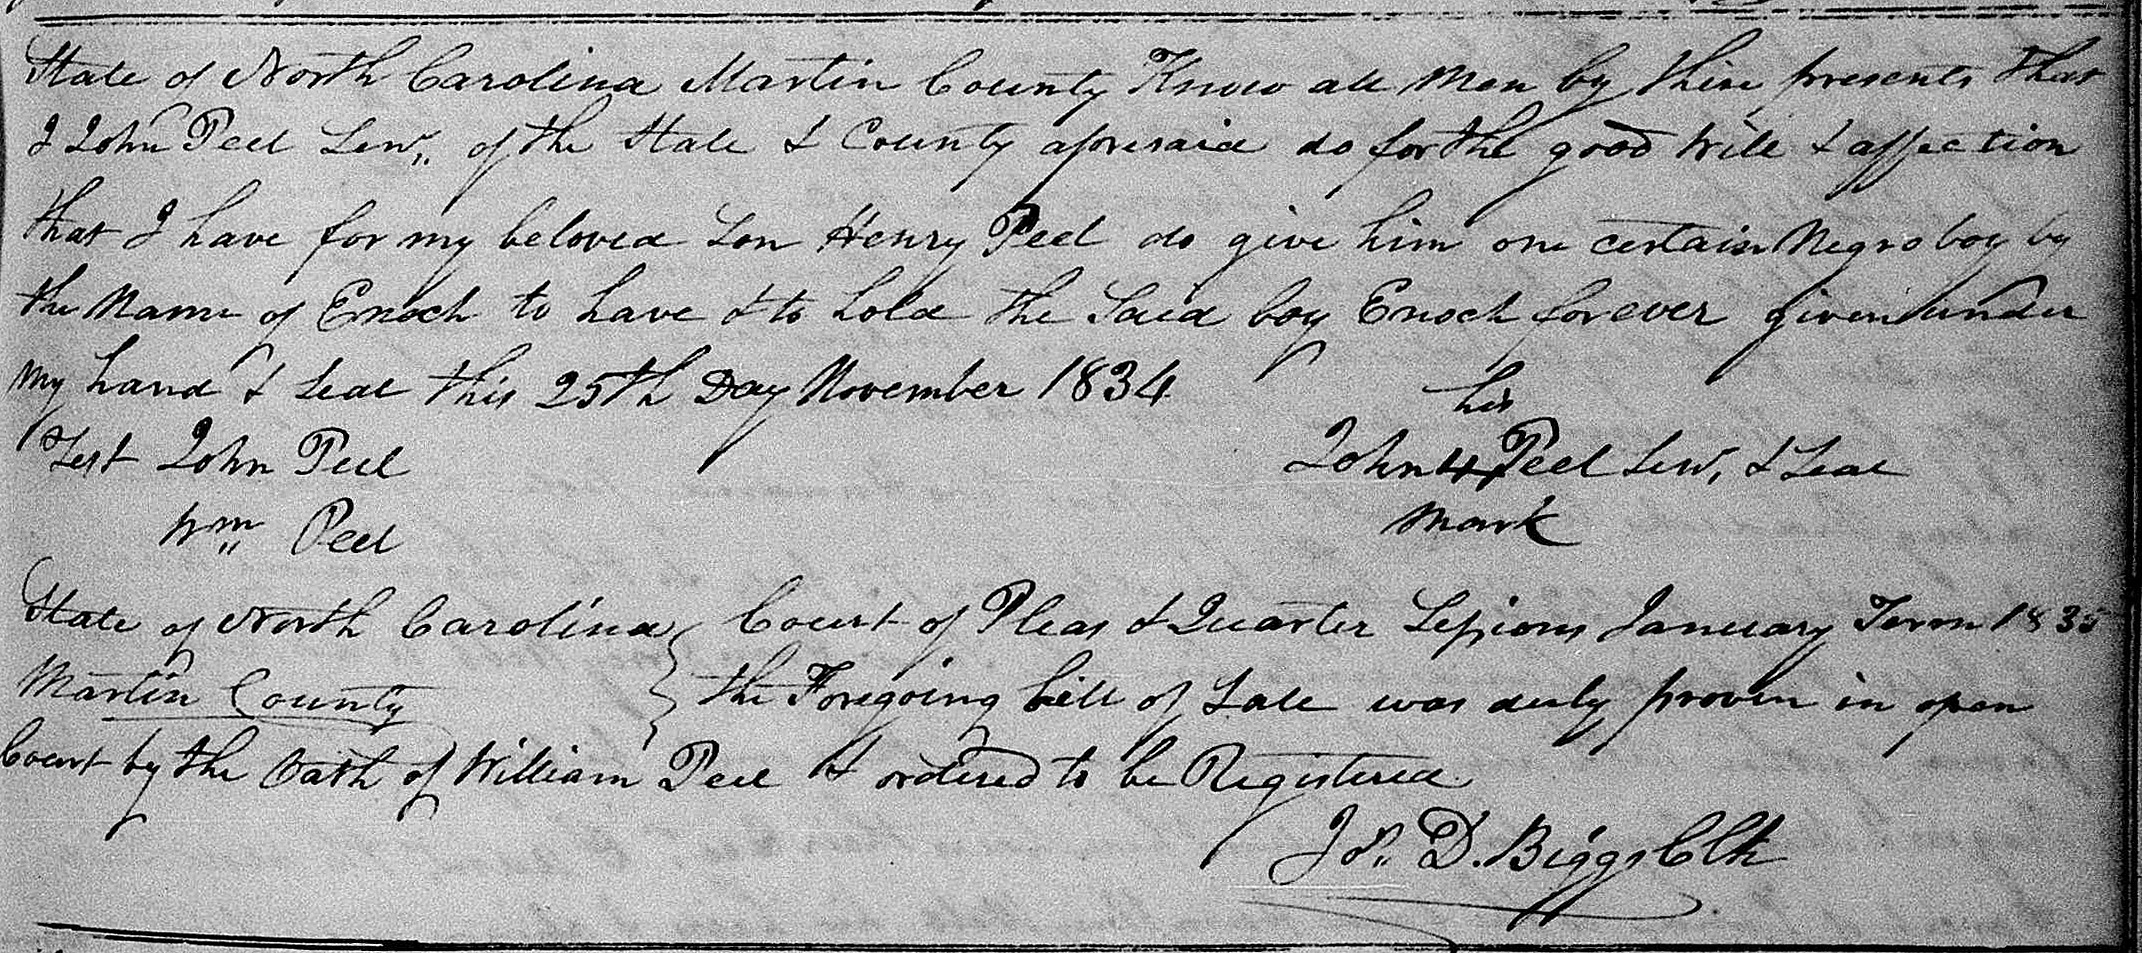 State of North Carolina Martin County Know all Men by these presents that
I John Peel Senr. of the State & County aforesaid do for the good will & affection
that I have for my beloved Son Henry Peel do give him one certain Negro boy by
the Name of Enoch to have & to hold the Said boy Enoch forever given under
my hand & Seal this 25th Day November 1834
his
Test John Peel John 4 Peel Senr, & Seal
Wm Peel mark
State of North Carolina { Court of Pleas & Quarter Sessions January Term 1835
Martin County { the Foregoing bill of Sale was duly proven in open
Court by the Oath of William Peel & ordered to be Registered
D. Biggs Clk